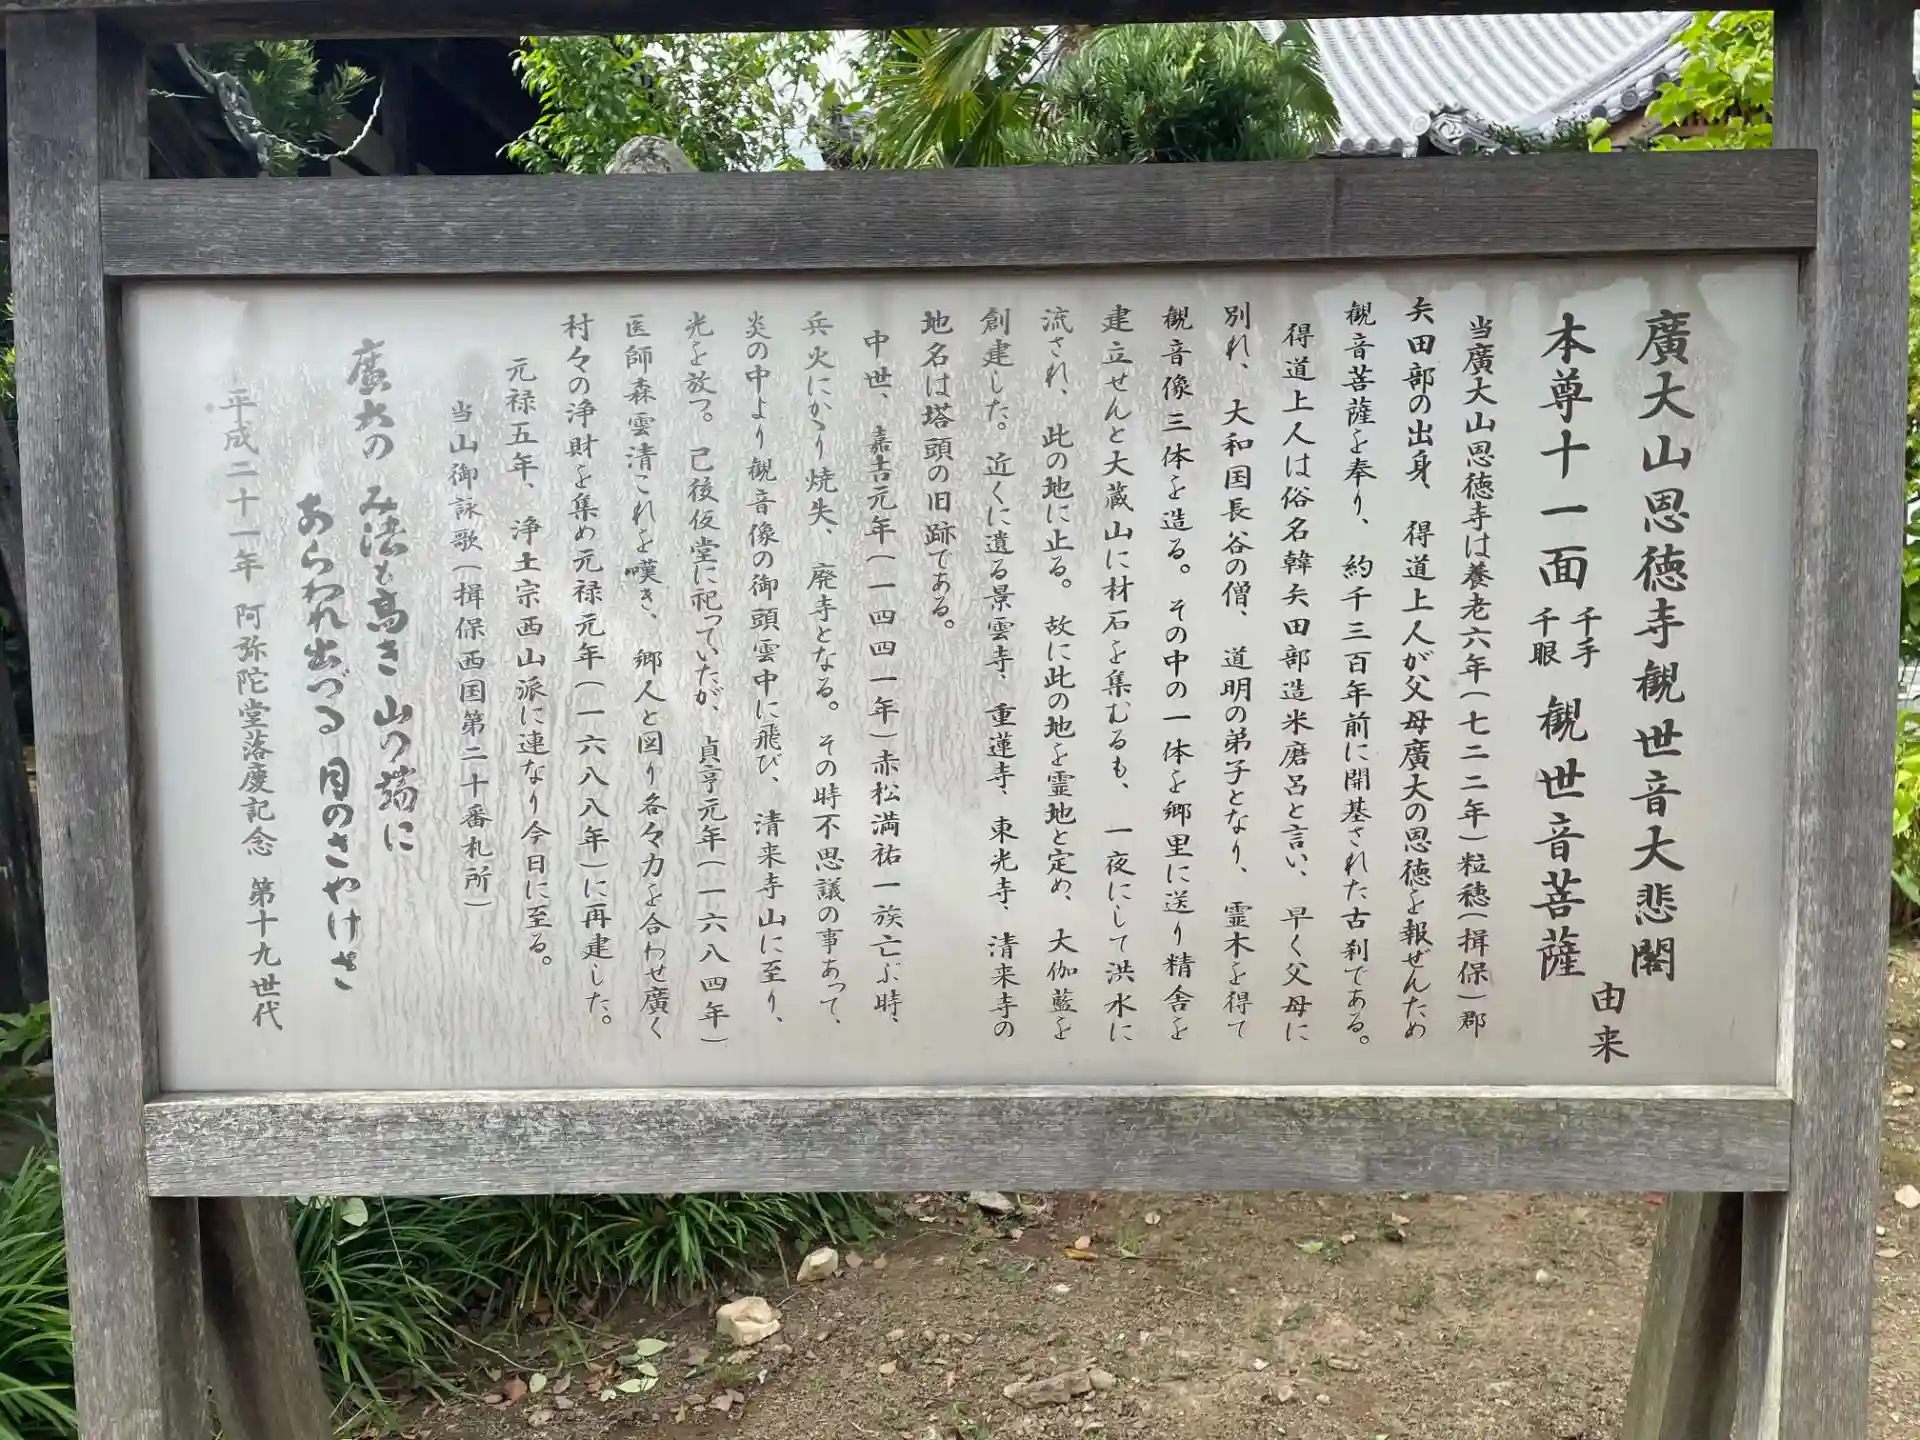 廣大山恩徳寺観世音大悲閣
本尊十一面千手千眼観世音菩薩
由来
当廣大山恩徳寺は養老六年(七二二年)粒穂(揖保)郡
矢田部の出身、得道上人が父母廣大の恩徳を報ぜんため
観音菩薩を奉り、約千三百年前に開基された古刹である。
得道上人は俗名韓矢田部造米麿呂と言い、早く父母に
別れ、大和国長谷の僧、道明の弟子となり、霊木を得て
観音像三体を造る。その中の一体を郷里に送り精舎を
建立せんと大蔵山に材石を集むるも、一夜にして洪水に
流され、此の地に止る。故に此の地を霊地と定め、大伽藍を
創建した。近くに遺る景雲寺、重蓮寺、東光寺、清来寺の
地名は塔頭の旧跡である。
中世、嘉吉元年(一四四一年)赤松満祐一族亡ぶ時、
兵火にかゝり焼失、廃寺となる。その時不思議の事あって、
炎の中より観音像の御頭雲中に飛び、清来寺山に至り、
光を放つ。已後仮堂に祀っていたが、貞亨元年(一六八四年)
医師森雲清これを嘆き、郷人と図り各々力を合わせ廣く
村々の浄財を集め元禄元年(一六八八年)に再建した。
元禄五年、浄土宗西山派に連なり今日に至る。
当山御詠歌(揖保西国第二十番札所)
廣大の み法も高き 山の端に
あらわれ出づる 月のさやけさ
平成二十一年 阿弥陀堂落慶記念 第十九世代